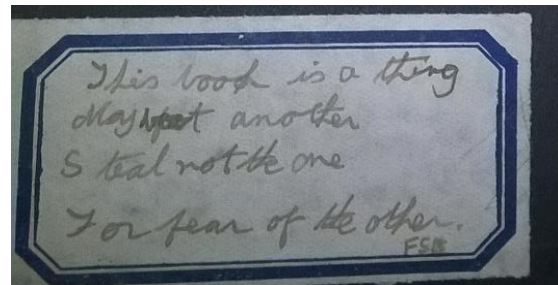 This book is a thing
May fist another
Steal not the one
For fear of the other.
FSB